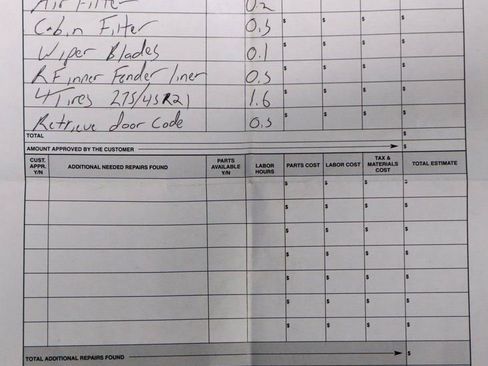 Air Filter 0.2 $
Cabin Filter 0.5 $ $ $ $
Wiper Blades 0.1 $ $ $ $
R F inner Fender liner 0.5 $ $ $ $
4 Tires 275/45R21 1.6 $ $ $ $
Retrieve door Code 0.5 $ $ $ $
TOTAL $
AMOUNT APPROVED BY THE CUSTOMER $
CUST. APPR. Y/N ADDITIONAL NEEDED REPAIRS FOUND PARTS AVAILABLE Y/N LABOR HOURS PARTS COST LABOR COST TAX & MATERIALS COST TOTAL ESTIMATE
$ $ $ $
$ $ $ $
$ $ $ $
$ $ $ $
$ $ $ $
$ $ $ $
$ $ $ $
TOTAL ADDITIONAL REPAIRS FOUND $